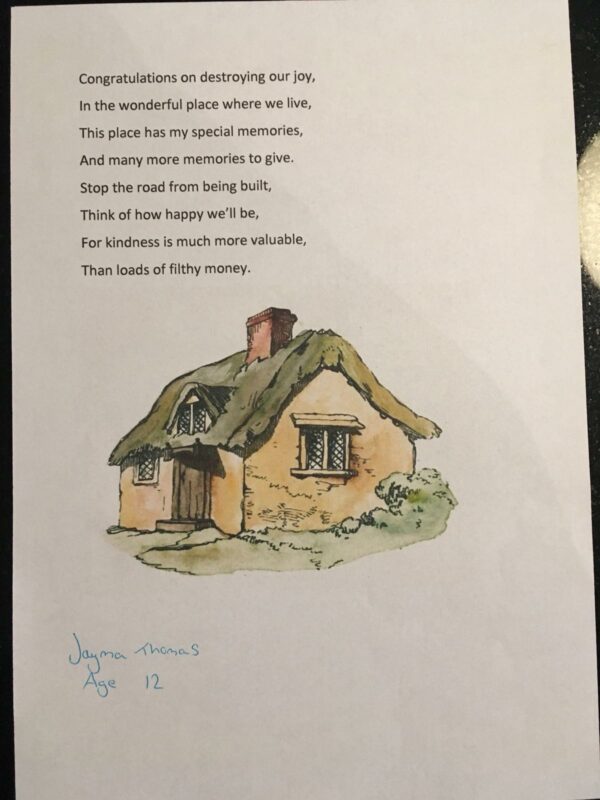 Congratulations on destroying our joy,
In the wonderful place where we live,
This place has my special memories,
And many more memories to give.
Stop the road from being built,
Think of how happy we'll be,
For kindness is much more valuable,
Than loads of filthy money.
Jayma Thomas
Age 12